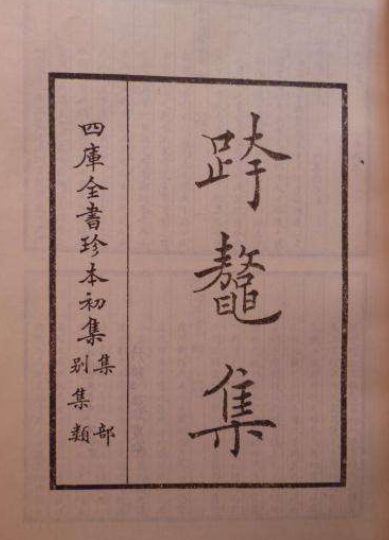 跨鼇集
四庫全書珍本初集
集部
別集類